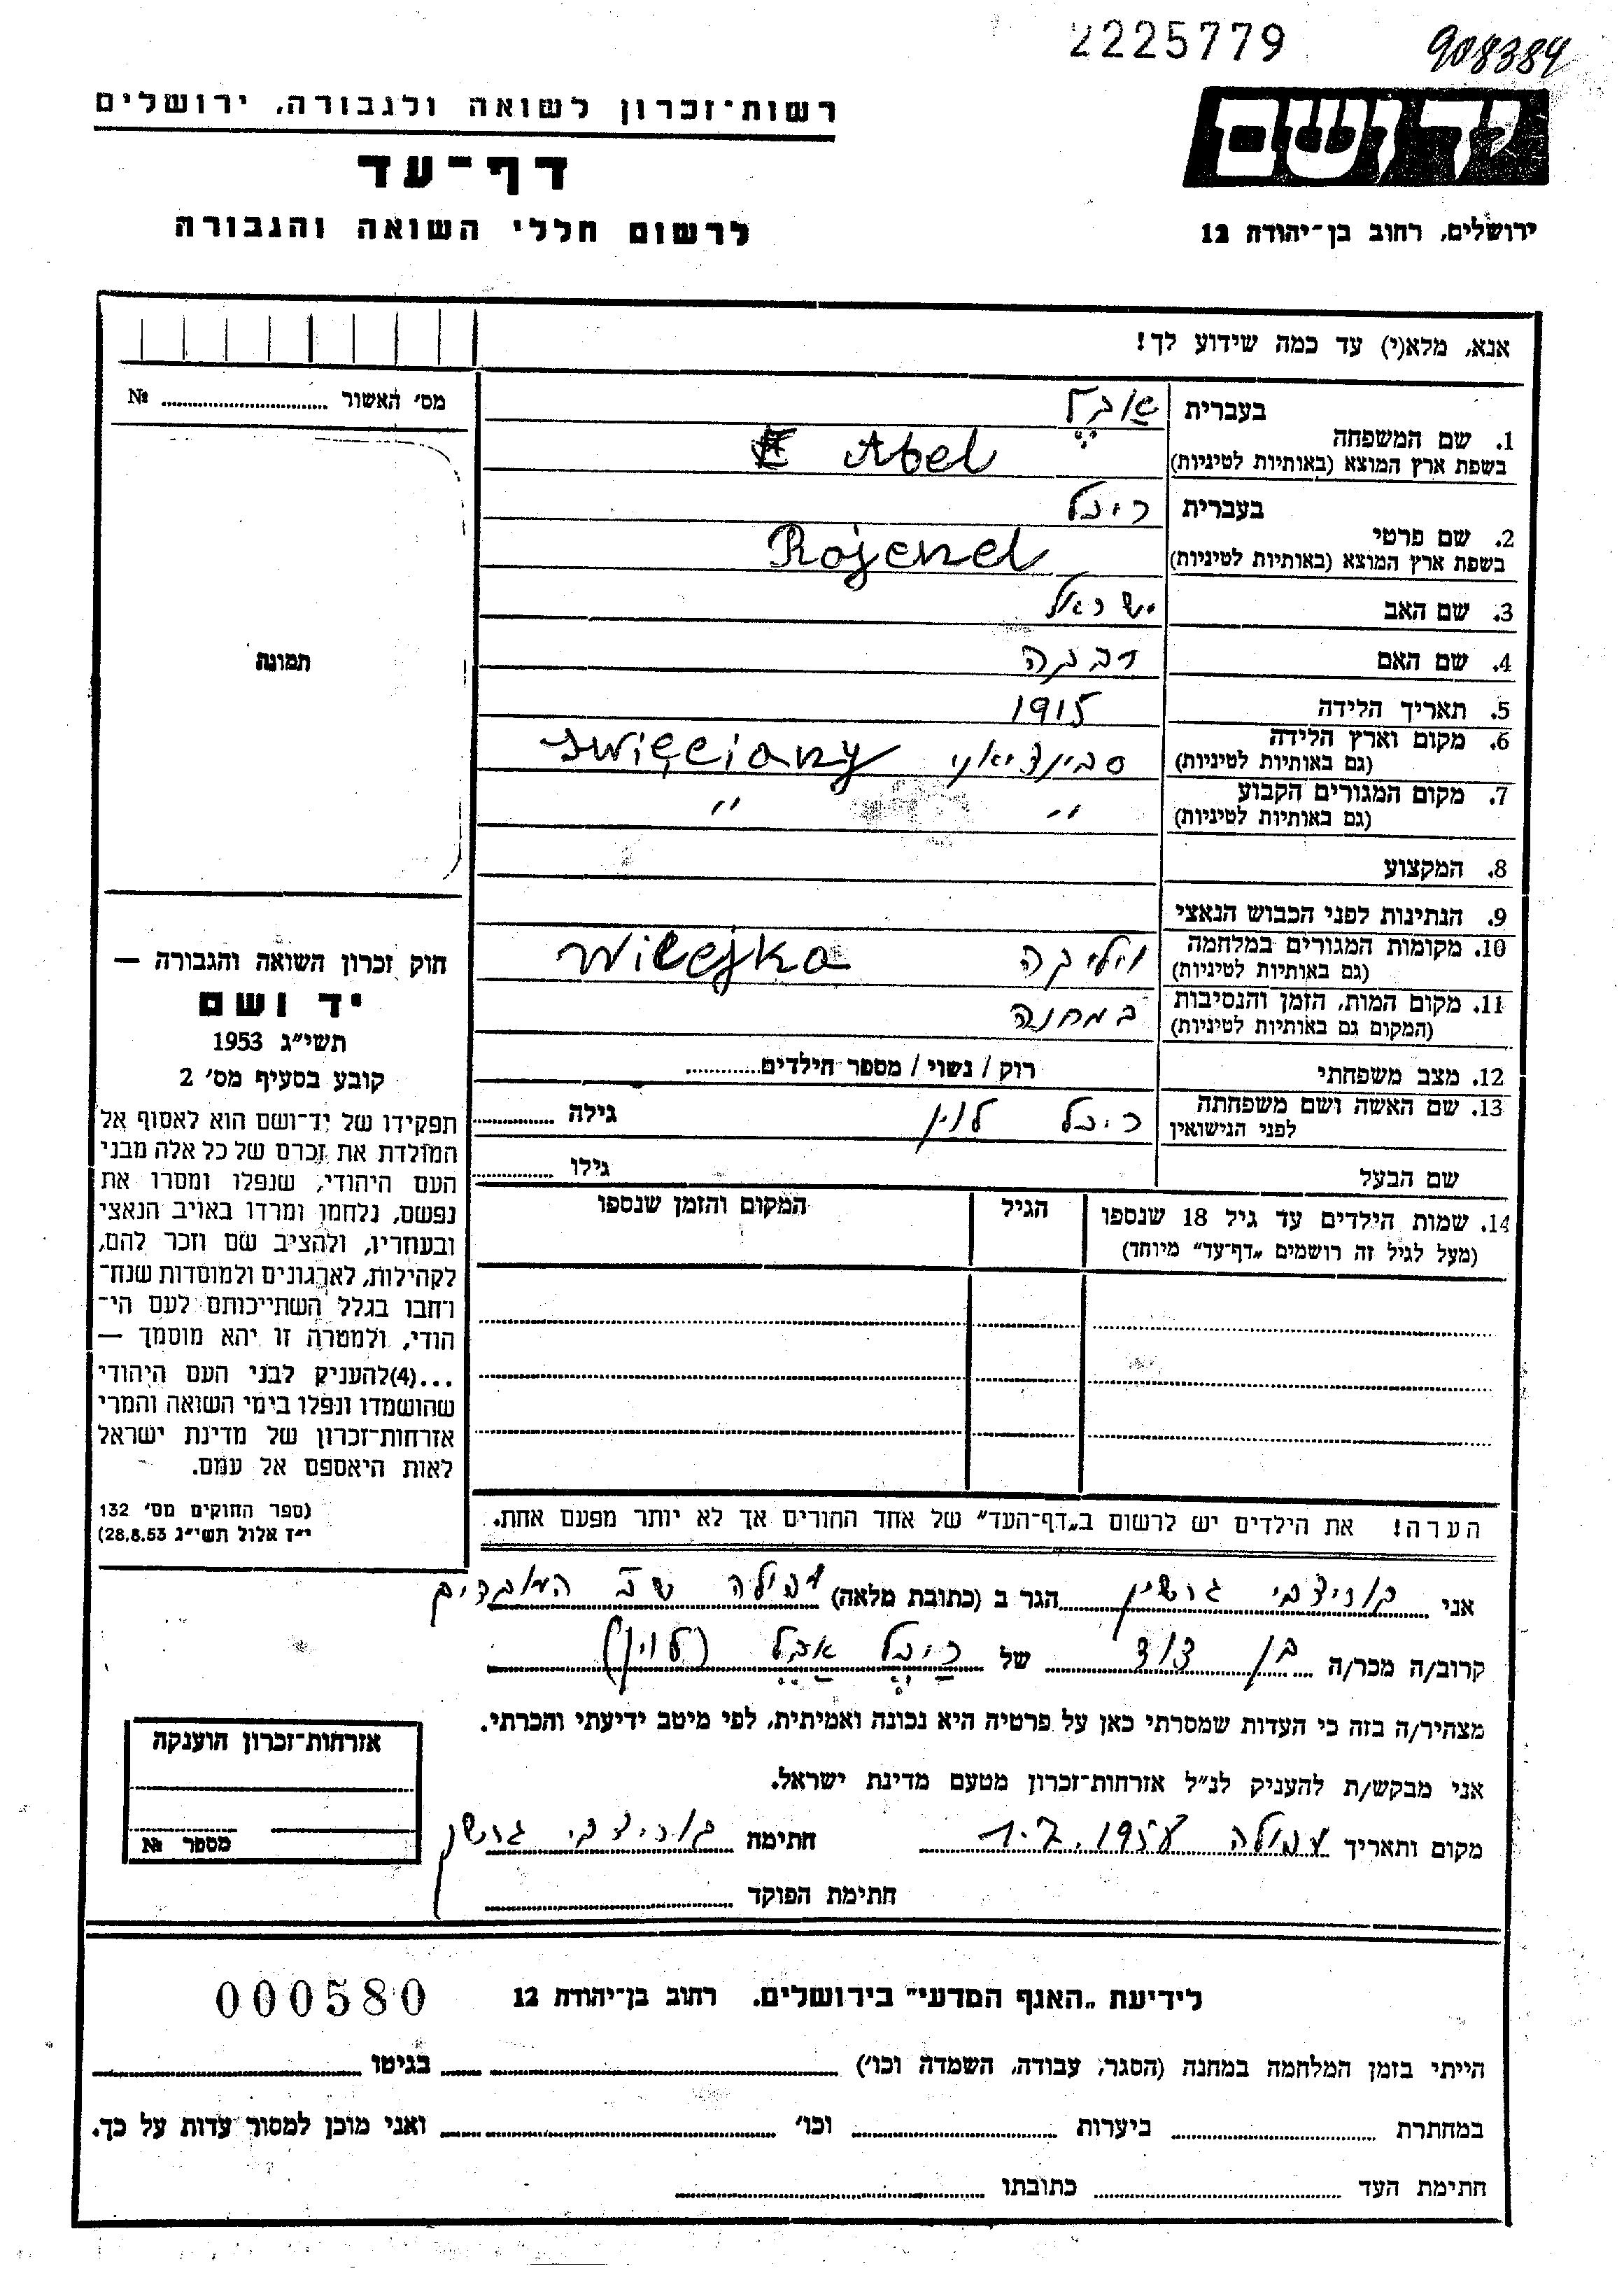 2225779
908384
יד ושם
רשות־זכרון לשואה ולגבורה, ירושלים
דף־עד
לרשום חללי השואה והגבורה
ירושלים, רחוב בן־יהודה 12
אנא, מלא(י) עד כמה שידוע לך!
מס׳ האשור № 
תמונה
1. שם המשפחה בעברית אבל
בשפת ארץ המוצא (באותיות לטיניות) Abel
2. שם פרטי בעברית רייכל
בשפת ארץ המוצא (באותיות לטיניות)
3. שם האב ישראל
4. שם האם רבקה
5. תאריך הלידה 1915
6. מקום וארץ הלידה
(גם באותיות לטיניות) סבינציאני Święciany
7. מקום המגורים הקבוע
(גם באותיות לטיניות) " "
8. המקצוע
9. הנתינות לפני הכבוש הנאצי
10. מקומות המגורים במלחמה
(גם באותיות לטיניות) ויליקה Wilejka
11. מקום המות, הזמן והנסיבות
(המקום גם באותיות לטיניות) במחנה
12. מצב משפחתי רוק / נשוי / מספר הילדים
13. שם האשה ושם משפחתה
לפני הנישואין רייכל לוין גילה
שם הבעל גילו
14. שמות הילדים עד גיל 18 שנספו הגיל המקום והזמן שנספו
(מעל לגיל זה רושמים „דף־עד״ מיוחד)
הערה! את הילדים יש לרשום ב„דף־העד״ של אחד ההורים אך לא יותר מפעם אחת.
חוק זכרון השואה והגבורה —
יד ושם
תשי״ג 1953
קובע בסעיף מס׳ 2
תפקידו של יד־ושם הוא לאסוף אל
המולדת את זכרם של כל אלה מבני
העם היהודי, שנפלו ומסרו את
נפשם, נלחמו ומרדו באויב הנאצי
ובעוזריו, ולהציב שם וזכר להם,
לקהילות, לארגונים ולמוסדות שנח־
רחבו בגלל השתייכותם לעם הי־
הודי, ולמטרה זו יהא מוסמך —
...(4)להעניק לבני העם היהודי
שהושמדו ונפלו בימי השואה והמרי
אזרחות־זכרון של מדינת ישראל
לאות היאספם אל עמם.
(ספר החוקים מס׳ 132
י״ז אלול תשי״ג 28.8.53)
אני גרשון הגר ב (כתובת מלאה) עפולה
קרוב/ה מכר/ה בן דוד של רייכל אבל (לוין)
מצהיר/ה בזה כי העדות שמסרתי כאן על פרטיה היא נכונה ואמיתית, לפי מיטב ידיעתי והכרתי.
אני מבקש/ת להעניק לנ״ל אזרחות־זכרון מטעם מדינת ישראל.
מקום ותאריך עפולה חתימה גרשון
חתימת הפוקד
אזרחות־זכרון הוענקה
מספר №
לידיעת „האגף המדעי״ בירושלים. רחוב בן־יהודה 12 000580
הייתי בזמן המלחמה במחנה (הסגר, עבודה, השמדה וכו׳) בגיטו
במחתרת ביערות וכו׳ ואני מוכן למסור עדות על כך.
חתימת העד כתובתו